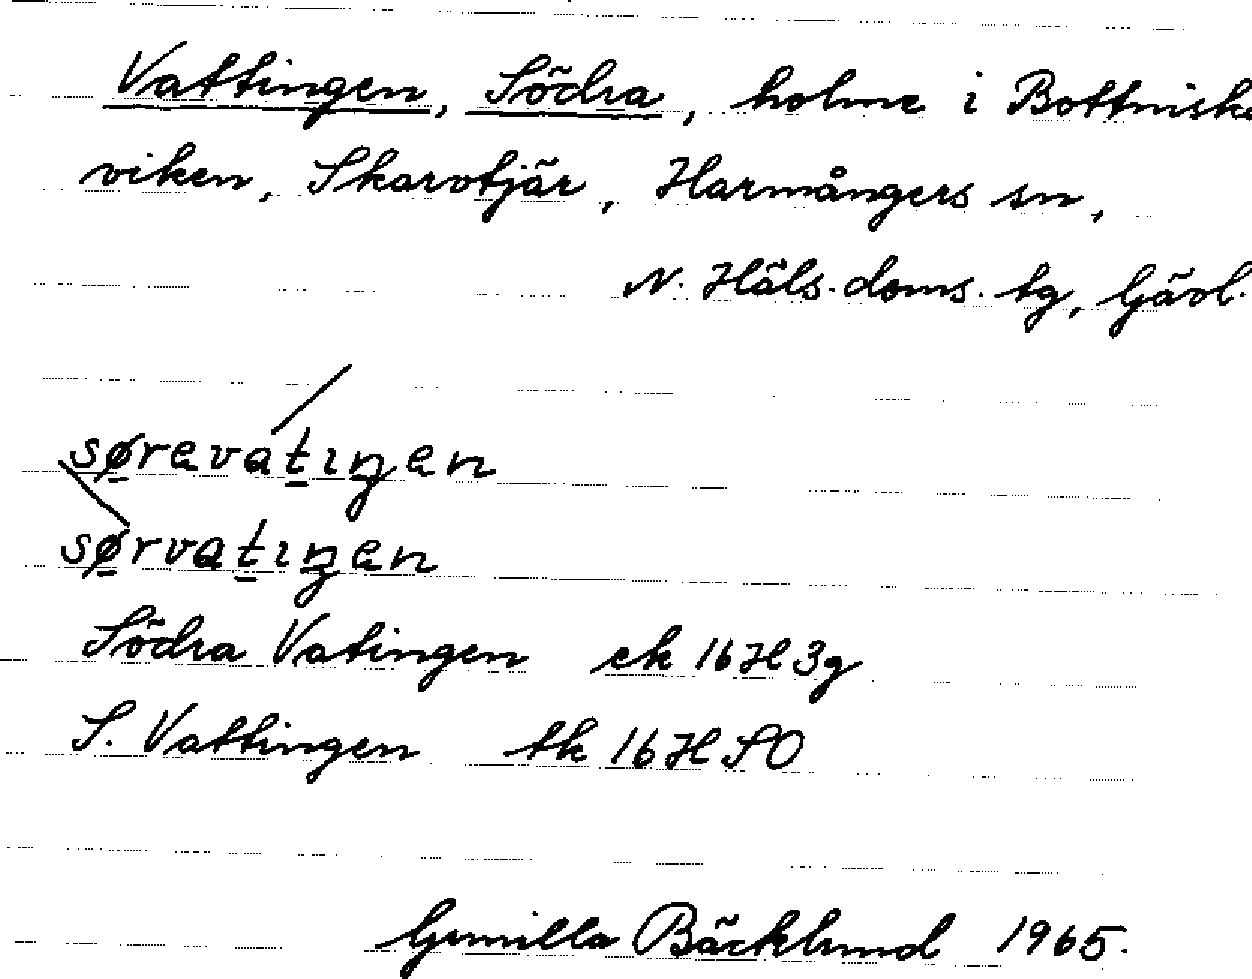 Vattingen, Södra, holme i Bottniska
viken, Skarvtjär, Harmångers sn,
N. Häls. doms. tg, Gävl.
sørevatıŋen
sørvatıŋen
Södra Vatingen ek 16H3g
S. Vattingen tk 16H SO
Gunilla Bäcklund 1965.